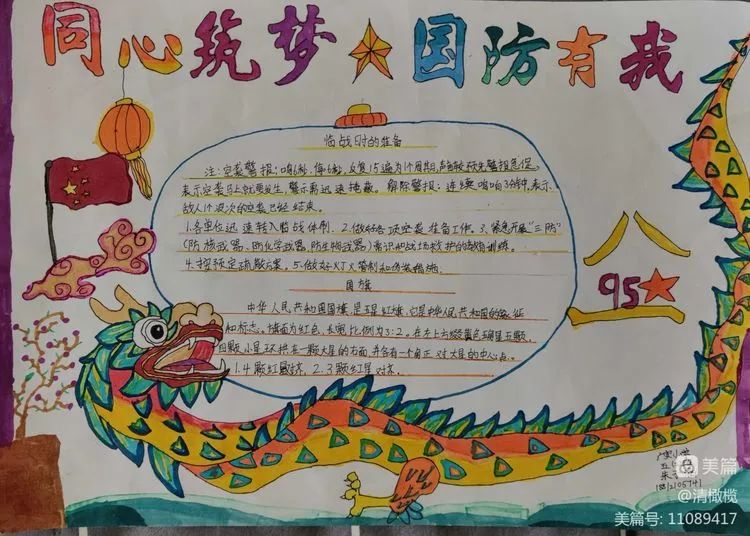 同心筑梦★国防有我
临战时的准备
注:空袭警报:鸣6秒,停6秒,反复15遍为1个周期,声音较预先警报急促,
表示空袭马上就要发生,警示需迅速掩蔽。解除警报:连续鸣响3分钟,表示
敌人1个波次的空袭已经结束。
1.各单位迅速转入临战体制。2.做好各项空袭准备工作。3.紧急开展"三防"
(防核武器、防化学武器、防生物武器)常识和战场救护的教育训练。
4.按预定疏散方案。5.做好灯火管制和伪装措施。
国旗
中华人民共和国国旗是五星红旗,它是中华人民共和国的象征
和标志。旗面为红色,长宽比例为3:2。在左上方缀黄色五角星五颗,
四颗小星环拱在一颗大星的右面,并各有一个角正对大星的中心点。
八一
95★
美篇
@清橄榄
美篇号: 11089417